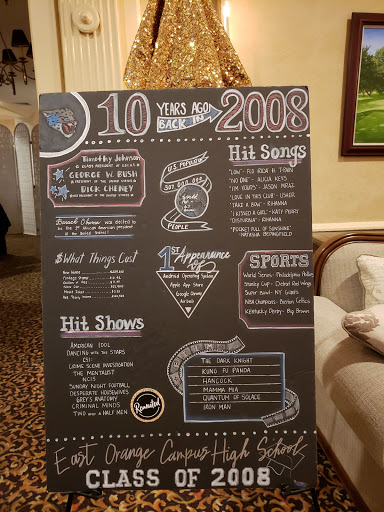 10 YEARS AGO
BACK IN 2008
Timothy Johnson
CLASS PRESIDENT OF EOCHS
GEORGE W. BUSH
DICK CHENEY
Barack Obama was elected to
be the 1st African American president
of the United States!
U.S. POPULATION
PEOPLE
Hit Songs
"LOW" - FLO RIDA ft T-PAIN
"NO ONE" - ALICIA KEYS
"I'M YOURS" - JASON MRAZ
"LOVE IN THIS CLUB" - USHER
"TAKE A BOW" - RIHANNA
"I KISSED A GIRL" - KATY PERRY
"DISTURBIA" - RIHANNA
"POCKET FULL OF SUNSHINE" -
NATASHA BEDINGFIELD
$What Things Cost
1st Appearance of
Android Operating System
Apple App Store
Google Chrome
Airbnb
SPORTS
World Series - Philadelphia Phillies
Stanley Cup - Detroit Red Wings
Super Bowl - NY Giants
NBA Champions - Boston Celtics
Kentucky Derby - Big Brown
Hit Shows
AMERICAN IDOL
DANCING WITH THE STARS
CSI:
CRIME SCENE INVESTIGATION
THE MENTALIST
NCIS
SUNDAY NIGHT FOOTBALL
DESPERATE HOUSEWIVES
GREY'S ANATOMY
CRIMINAL MINDS
TWO and a HALF MEN
Reunited
THE DARK KNIGHT
KUNG FU PANDA
HANCOCK
MAMMA MIA
QUANTUM OF SOLACE
IRON MAN
East Orange Campus High School
CLASS OF 2008